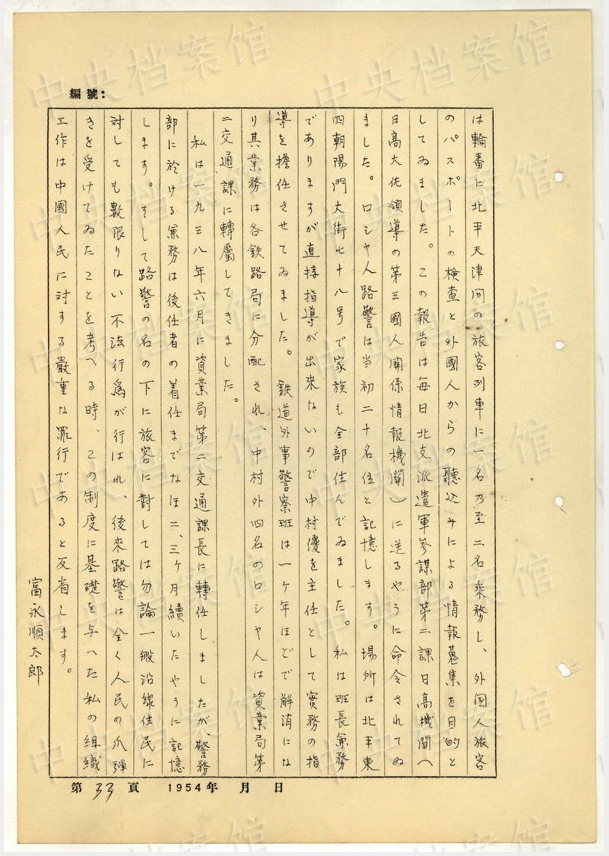 編號：
は輪番に北平天津间の旅客列車に一名乃至二名乗務し、外国人旅客
のパスポートの検查と外國人からの聴込みによる情報蒐集を目的と
してゐました。この報告は毎日北支派遣軍参謀部第二課日高機関へ
日高大佐領導の第三國人関係情報機関）に送るやうに命令されてゐ
ました。ロシヤ人路警は当初二十名位と記憶します。場所は北平東
四朝陽門大街七十八号で家族も全部住んでゐました。私は班長兼務
でありますが直接指導が出来ないので中村優を主任として實務の指
導を擔任させてゐました。鉄道外事警察班は一ヶ年ほどで解消にな
り其業務は各鉄路局に分配され、中村外四名のロシヤ人は資業局第
二交通課に轉屬してきました。
私は一九三八年六月に資業局第二交通課長に轉任しましたが、警務
部に於ける兼務は後任者の着任までなほ二、三ヶ月續いたやうに記憶
します。そして路警の名の下に旅客に対しては勿論一般沿線住民に
対しても數限りない不法行為が行はれ、後来路警は全く人民の爪弾
きを受けてゐたことを考へる時、この制度に基礎を与へた私の组織
工作は中國人民に対する嚴重な罪行であると反省します。
富永順太郎
第 33 頁 1954年 月 日
中央档案馆